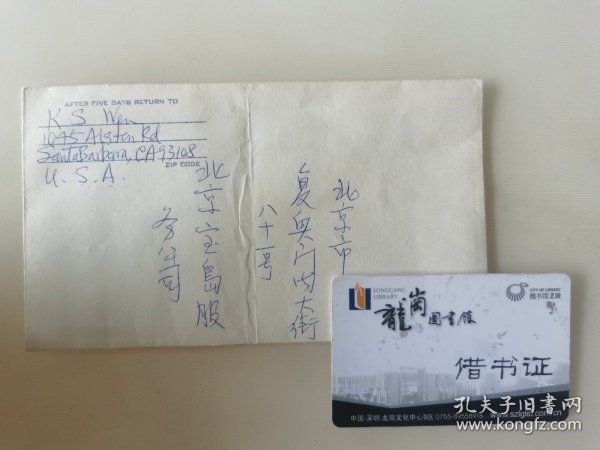 AFTER FIVE DAYS RETURN TO
K S Wen
1045 Alston Rd
Santa Barbara, CA 93108
ZIP CODE
U. S. A.
北京市
复兴门内大街
八十一号
北京宝岛服
务公司
LONGGANG
LIBRARY
龍崗圖書館
CITY OF LIBRARY
图书馆之城
借书证
中国·深圳·龙岗文化中心D区 0755-89558918 www.szlglib.com.cn
孔夫子旧书网
www.kongfz.com